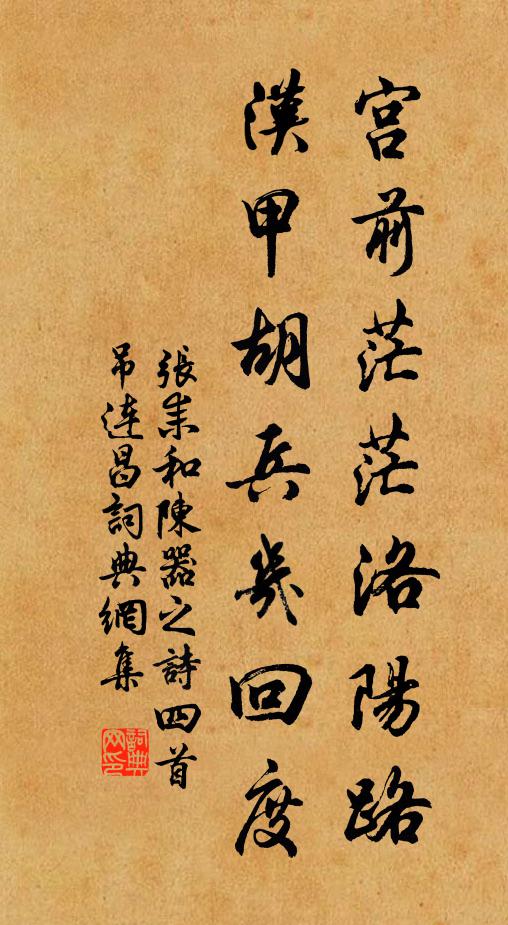 宫前茫茫洛陽路
漢甲胡兵幾回度
張耒和陳器之詩四首
吊連昌詞典網集
詞典
网印